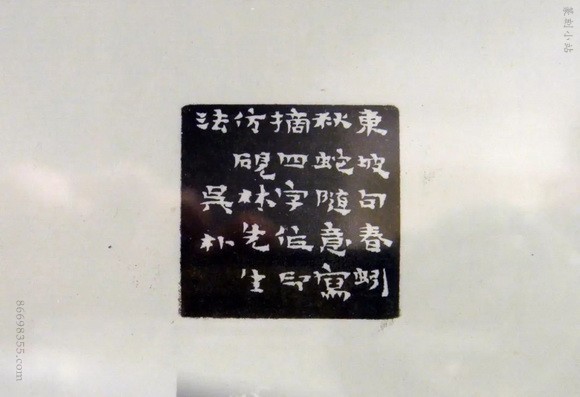 東坡句春蚓
秋蛇隨意寫
摘四字作印
仿硯林先生
法吳朴
篆刻小站
86698355.com